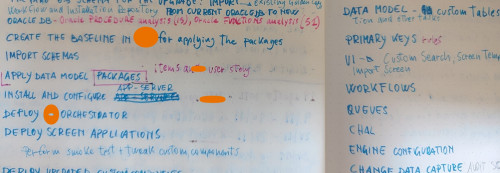 FOR THE UPGRADE: IMPORT → Existing
Workflow and FROM CURRENT ORACLE DB TO NEW
ORACLE DB - Oracle PROCEDURE analysis (15), Oracle FUNCTIONS analysis (52)
CREATE THE BASELINE IN for applying the packages
IMPORT SCHEMAS
items as user story
APPLY DATA MODEL PACKAGES
APP-SERVER
INSTALL AND CONFIGURE
DEPLOY ORCHESTRATOR
DEPLOY SCREEN APPLICATIONS
Perform smoke test + tweak custom components
DEPLOY UPDATED
DATA MODEL - custom tables
PRIMARY KEYS rules
UI → Custom Search, Screen
Import Screen
WORKFLOWS
QUEUES
CHAL
ENGINE CONFIGURATION
CHANGE DATA CAPTURE AUDIT